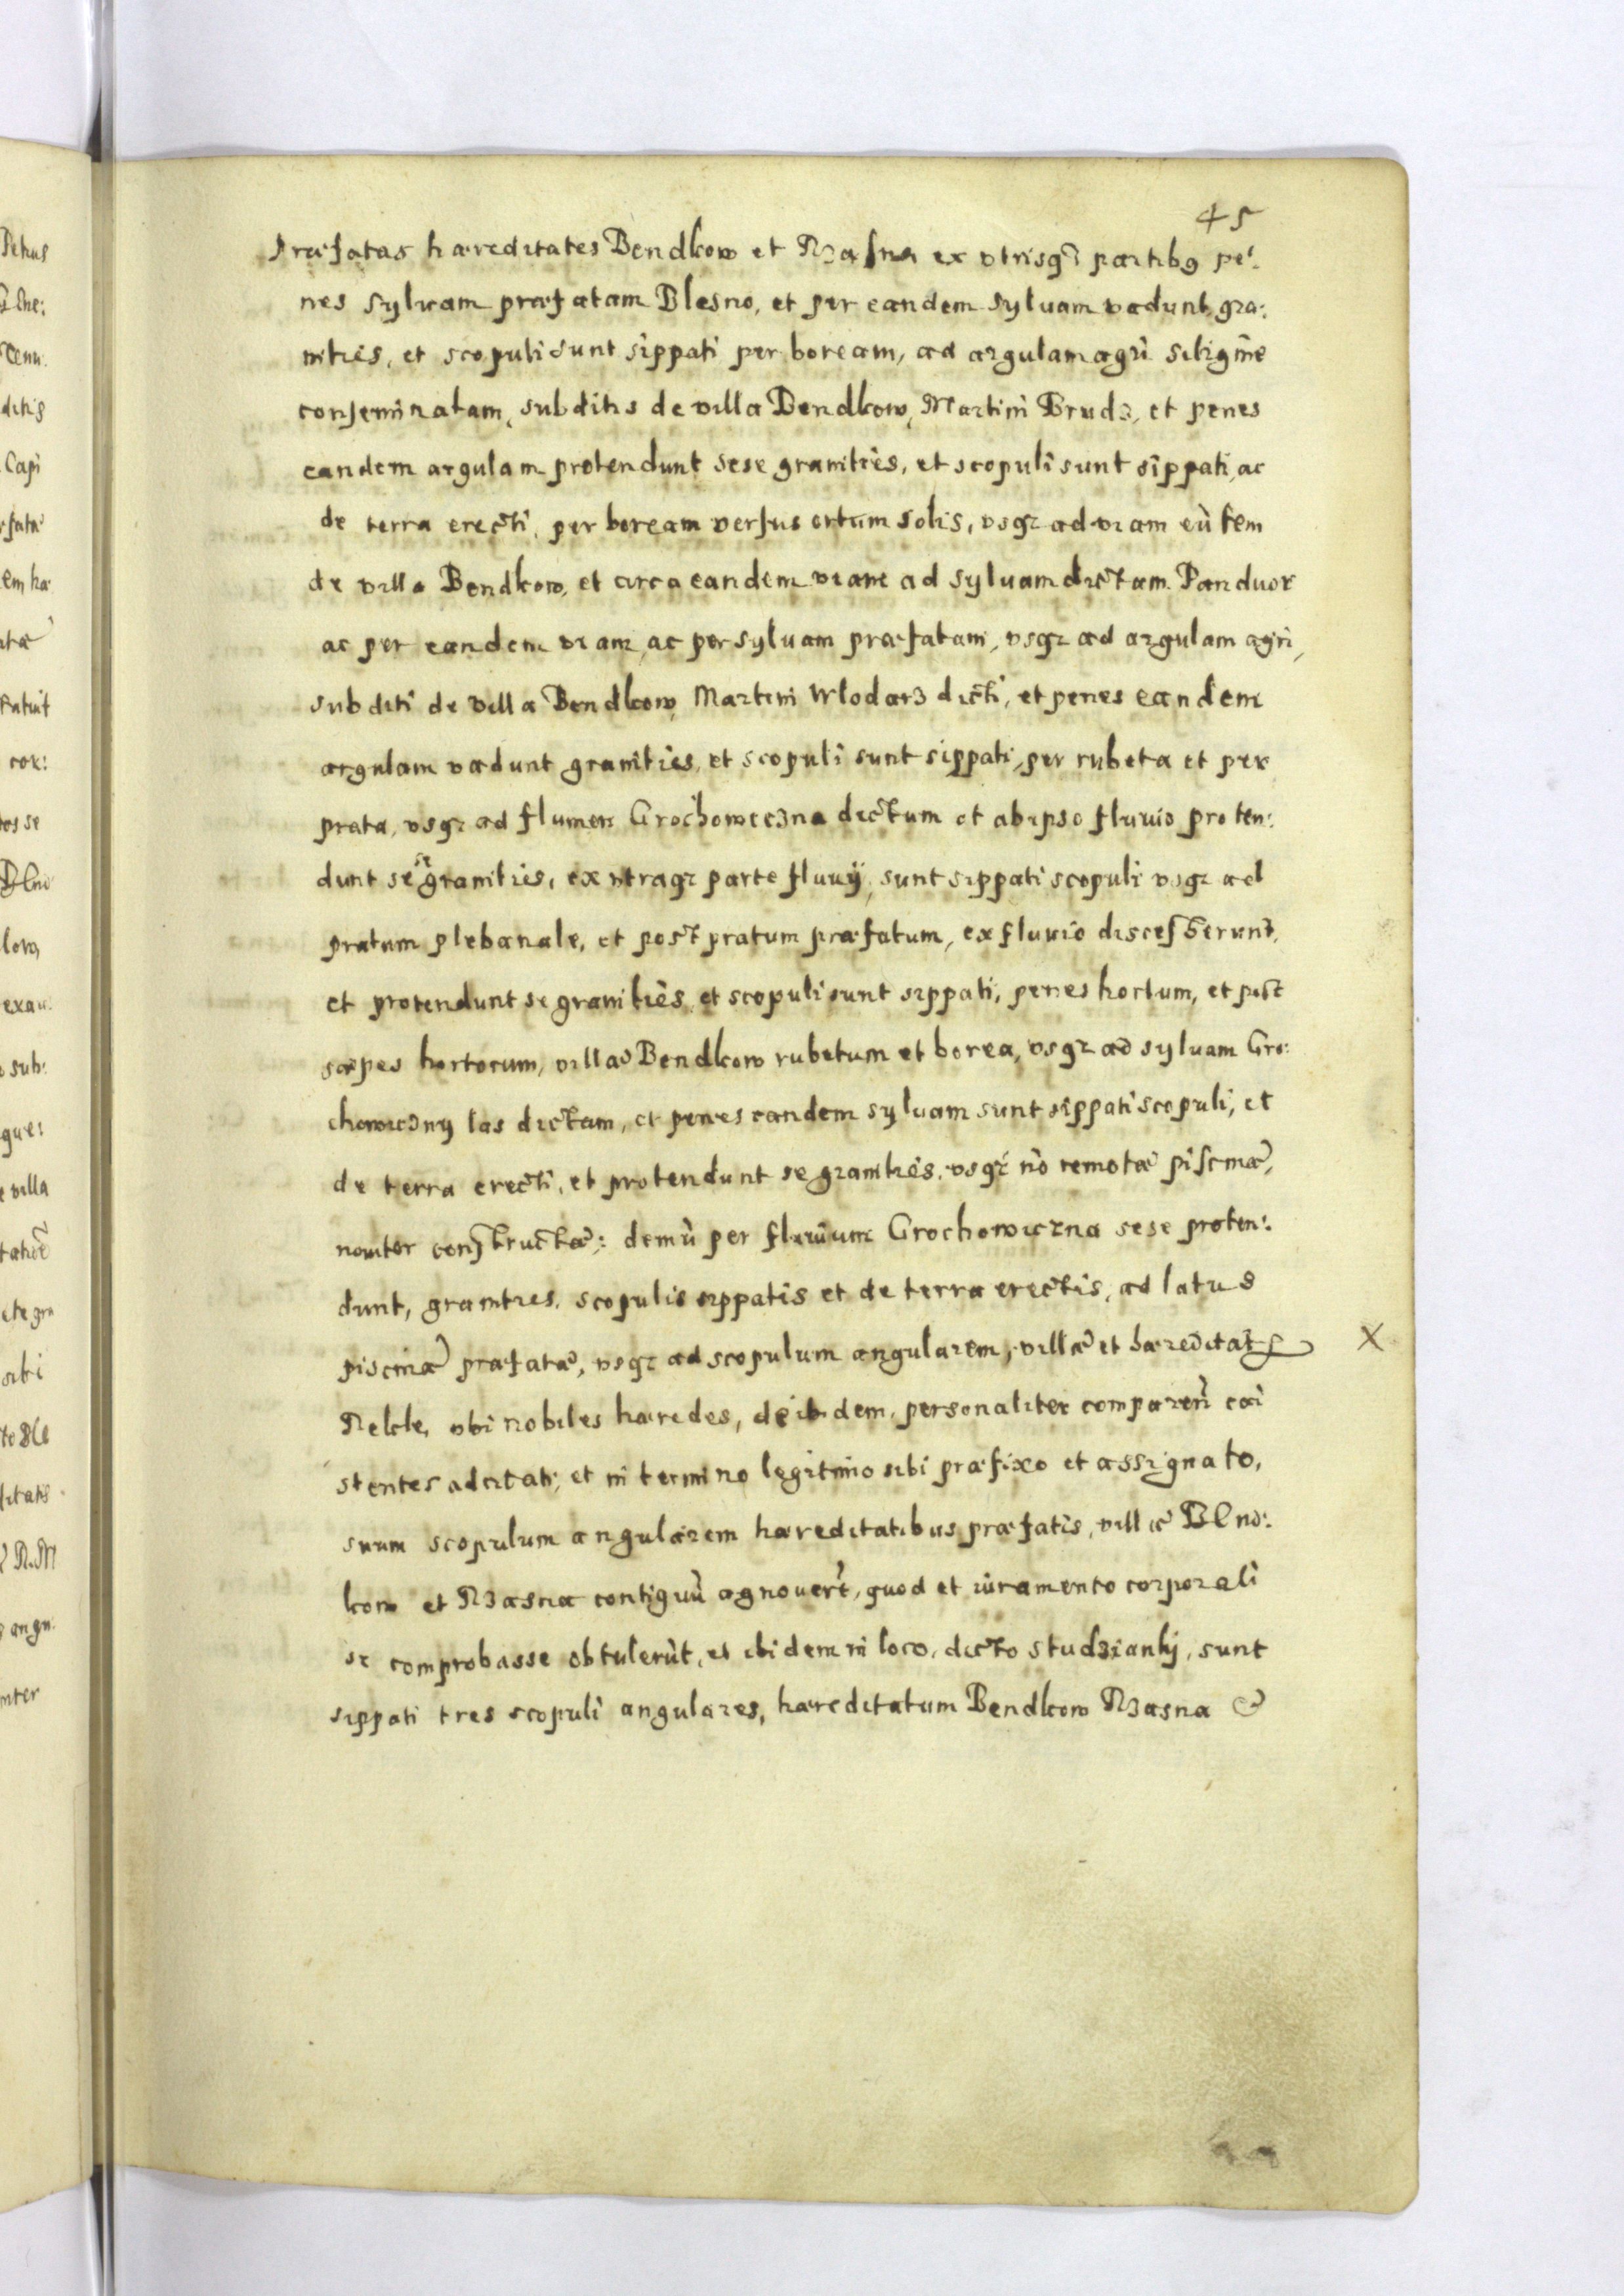 45
præfatas hæreditates Bendkow et Rzasna ex vtrisq₃ partibꝯ pe:
nes syluam præfatam Blesno, et per eandem syluam vadunt gra:
nities, et scopuli sunt sippati per boream, ad argulam agri siligine
conseminatam, subditis de villa Bendkow, Martini Brudz, et penes
eandem argulam protendunt sese granities, et scopuli sunt sippati, ac
de terra erecti, per boream versus ortum solis, vsq₃ ad viam eūtem
de villa Bendkow, et circa eandem viam ad syluam dictam Panduor
ac per eandem viam, ac per syluam præfatam, vsq₃ ad argulam agri,
subditi de villa Bendkow, Martini Wlodarz dicti, et penes eandem
argulam vadunt granities, et scopuli sunt sippati, per rubeta et per
prata, vsq₃ ad flumen Grochowiczna dictum et ab ipso fluuio proten:
dunt se se granities, ex vtraq₃ parte fluuij, sunt sippati scopuli vsq₃ ad
pratum plebanale, et post pratum præfatum, ex fluuio discesserunt,
et protendunt se granities et scopuli sunt sippati, penes hortum, et post
sæpes hortorum, villæ Bendkow rubetum et borea, vsq₃ ad syluam Gro:
chowiczny las dictam, et penes eandem syluam sunt sippati scopuli, et
de terra erecti, et protendunt se granities, vsq₃ nō remotæ piscinæ,
nouiter constructæ: demū per fluuium Grochowiczna sese proten:
dunt, granities, scopulis sippatis et de terra erectis, ad latus
piscinæ præfatæ, vsq₃ ad scopulum angularem, villæ et hæreditat X
Relcle, vbi nobiles hæredes, de ibidem, personaliter comparen̄ cai
stentes adcitati, et in termino legitimo sibi præfixo et assignato,
suum scopulum angularem hæreditatibus præfatis, villæ Bend:
kow et Rzasna contiguū agnouert̄, quod et iuramento corporali
se comprobasse obtulerūt, et ibidem in loco, dicto studzianki, sunt
sippati tres scopuli angulares, hæreditatum Bendkow Rzasna &